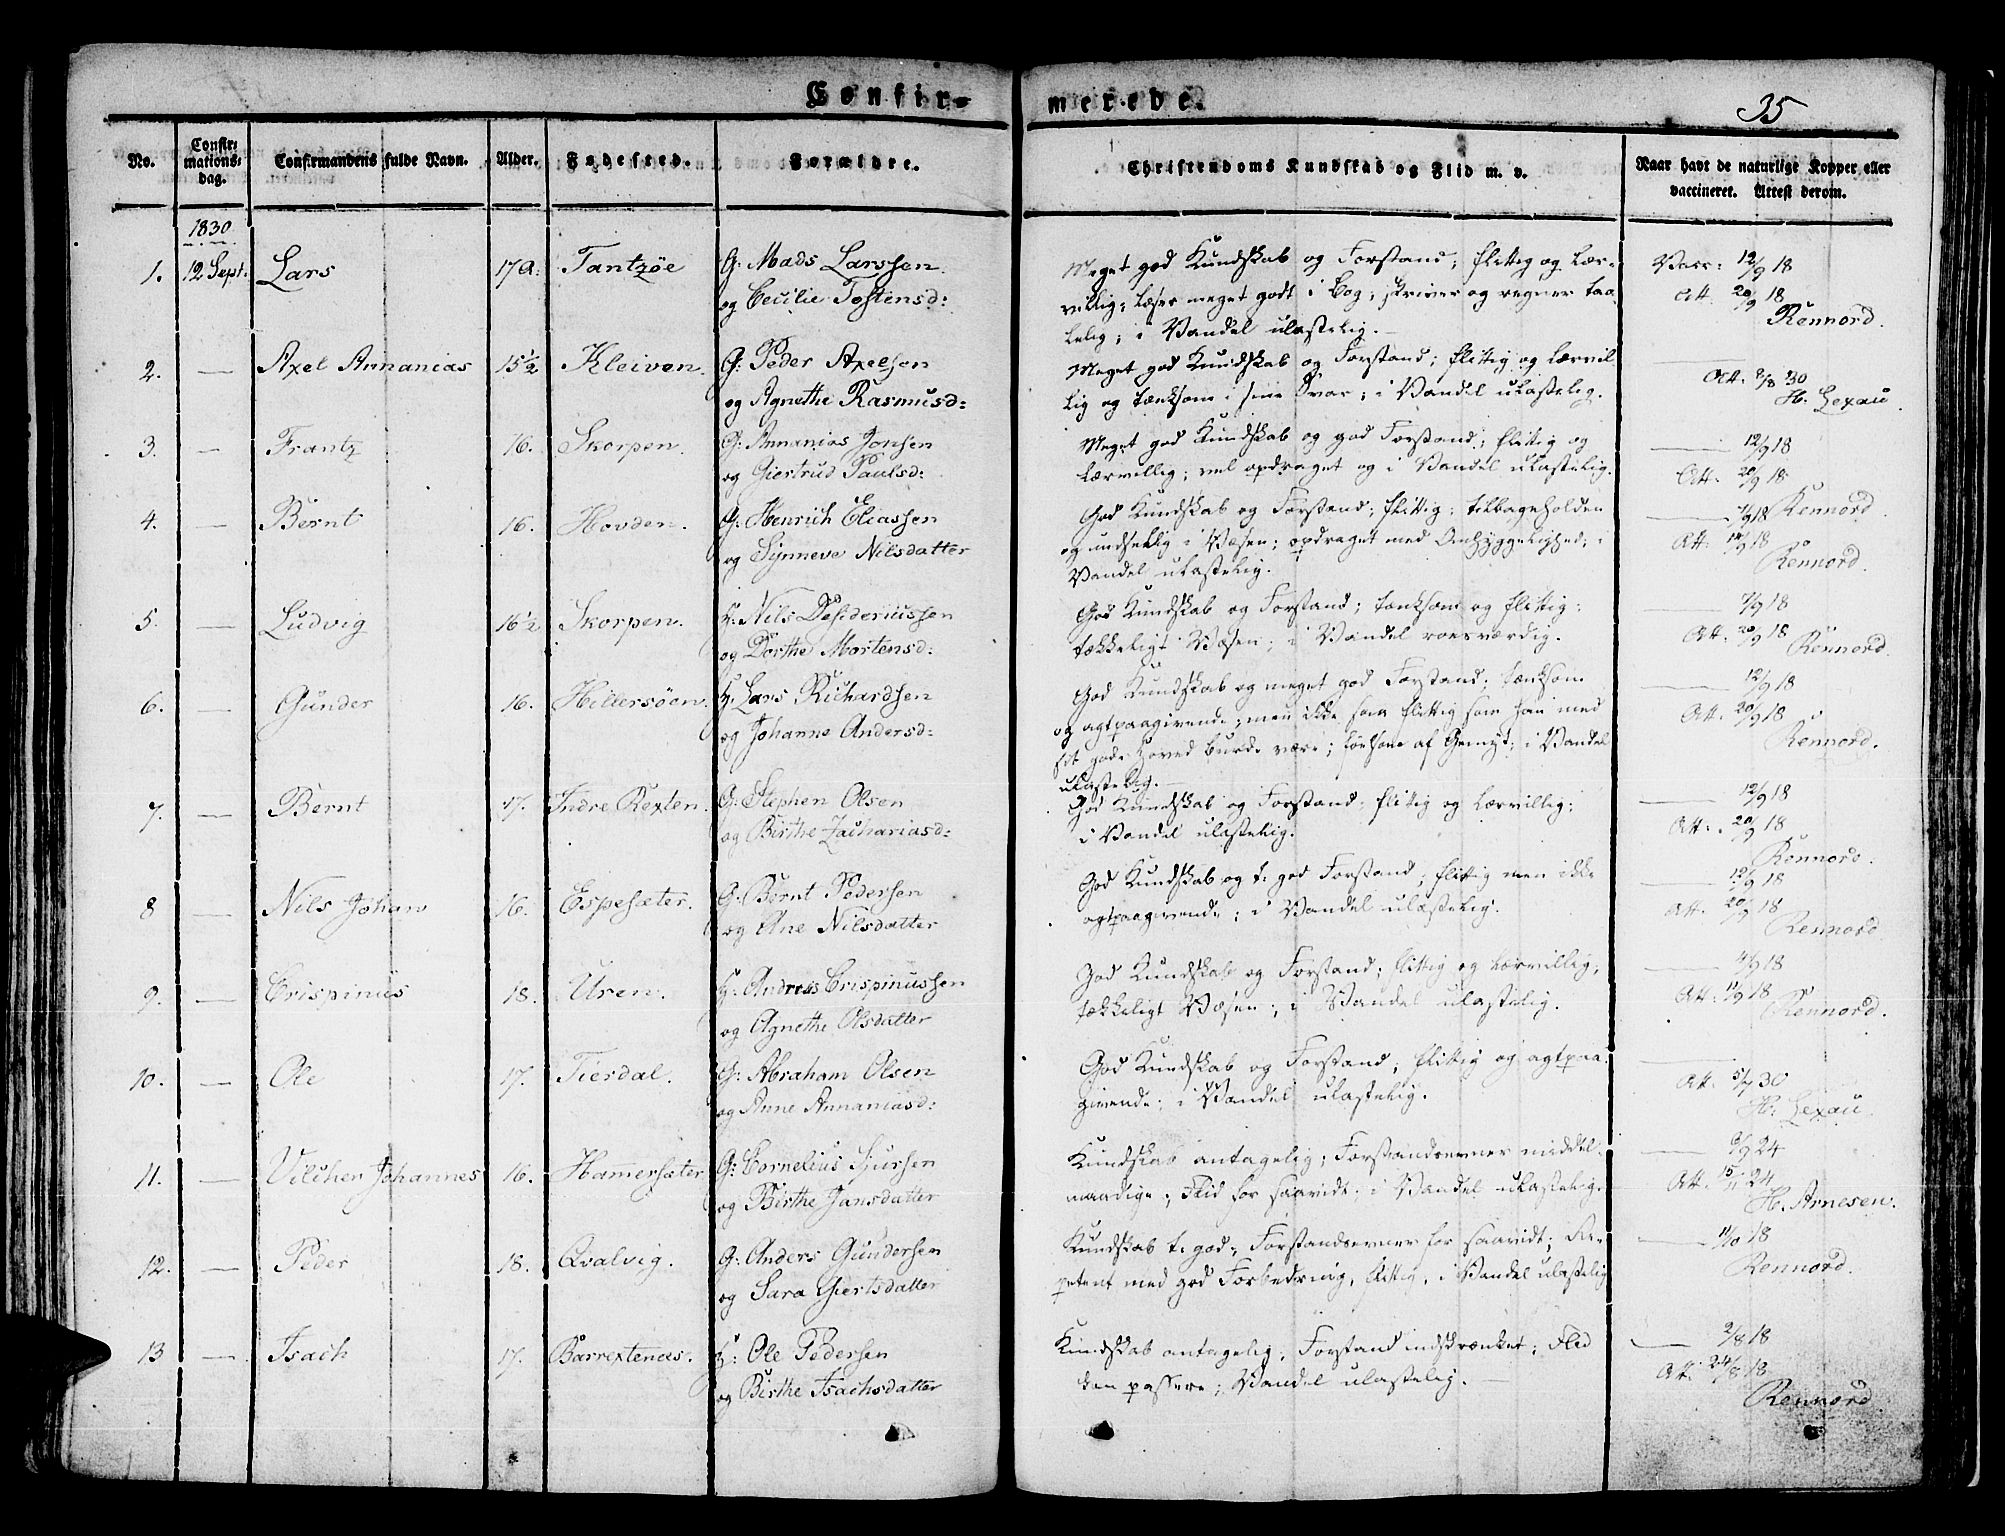 Confir- merede.
35
No.
Confir-
mations-
dag.
Confirmandens fulde Navn.
Alder.
Fødested.
Forældre.
Christendoms Kundskab og Flid m. v.
Naar havt de naturlige Kopper eller
vaccineret. Attest derom.
1830
1. 12 Sept. Lars 17 a: Tantzöe G: Mads Larssen
og Cecilie Tostensd:
Meget god Kundskab og Forstand; flittig og lær-
villig; læser meget godt i Bog; skriver og regner taa-
lelig; i Vandel ulastelig.
Vacc: 12/9 18
Att. 20/9 18
Rennord.
2. — Axel Annanias 15½ Kleiven. G: Peder Axelsen
og Agnethe Rasmusd:
Meget god Kundskab og Forstand; flittig og lærvil
lig og tænksom i sine Svar; i Vandel ulastelig.
Att. 8/8 30
H. Lexau.
3. — Frantz 16. Skorpen. G: Annanias Jonsen
og Giertrud Paulsd:
Meget god Kundskab og god Forstand; flittig og
lærvillig; vel opdraget og i Vandel ulastelig.
— 12/9 18
Att. 20/9 18
Rennord
4. — Bernt 16. Hovden. G: Henrich Eliassen
og Synneve Nilsdatter
God Kundskab og Forstand; flittig; tilbageholden
og undseelig i Væsen; opdraget med Omhyggelighed; i
Vandel ulastelig.
— 7/9 18
Att. 14/9 18
Rennord.
5. — Ludvig 16½ Skorpen. H: Nils Desideriussen
og Dorthe Mortensd:
God Kundskab og Forstand; tænksom og flittig;
tækkeligt Væsen; i Vandel roesværdig.
— 7/9 18
Att. 20/9 18
Rennord.
6. — Gunder 16. Hillersöen. H. Lars Richardsen
og Johanne Andersd:
God Kundskab og meget god Forstand; tænksom
og agtpaagivende; men ikke saa flittig som han med
sit gode Hoved burde være; af Gemyt; i Vandel
ulastelig.
— 12/9 18
Att. 20/9 18
Rennord.
7. — Bernt 17. Indre Rexten. G: Stephen Olsen
og Birthe Zachariasd:
God Kundskab og Forstand; flittig og lærvillig;
i Vandel ulastelig.
— 12/9 18
Att. 20/9 18
Rennord.
8 — Nils Johan 16. Espesæter. G: Bernt Pedersen
og Ane Nilsdatter
God Kundskab og t. god Forstand; flittig men ikke
agtpaagivende; i Vandel ulastelig.
— 12/9 18
Att. 20/9 18
Rennord
9. — Crispinus 18. Uren. H: Andreas Crispinussen
og Agnethe Olsdatter
God Kundskab og Forstand; flittig og lærvillig;
tækkeligt Væsen; i Vandel ulastelig.
— 4/9 18
Att. 11/9 18
Rennord.
10. — Ole 17. Tierdal. G: Abraham Olsen
og Anne Annaniasd:
God Kundskab og Forstand; flittig og agtpaa
givende; i Vandel ulastelig.
Att. 5/7 30
H: Lexau.
11. — Vilcher Johannes 16. Hamersæter G: Cornelius Sjursen
og Birthe Jansdatter
Kundskab antagelig; Forstandsevner middel-
maadige; Flid for saavidt; i Vandel ulastelig.
— 6/9 24
Att. 15/11 24
H. Arnesen.
12. — Peder 18. Qvalvig. G: Anders Gundersen
og Sara Giertsdatter
Kundskab t. god; Forstandsevner for saavidt; Re-
petent med god Forbedring, flittig, i Vandel ulastelig
— 11/10 18
Rennord.
13 — Isach 17. Barrextenæs. H: Ole Pedersen
og Birthe Isachsdatter
Kundskab antagelig; Forstand indskrænket; Flid
kan passere; Vandel ulastelig. —
— 2/8 18
Att. 24/8 18
Rennord